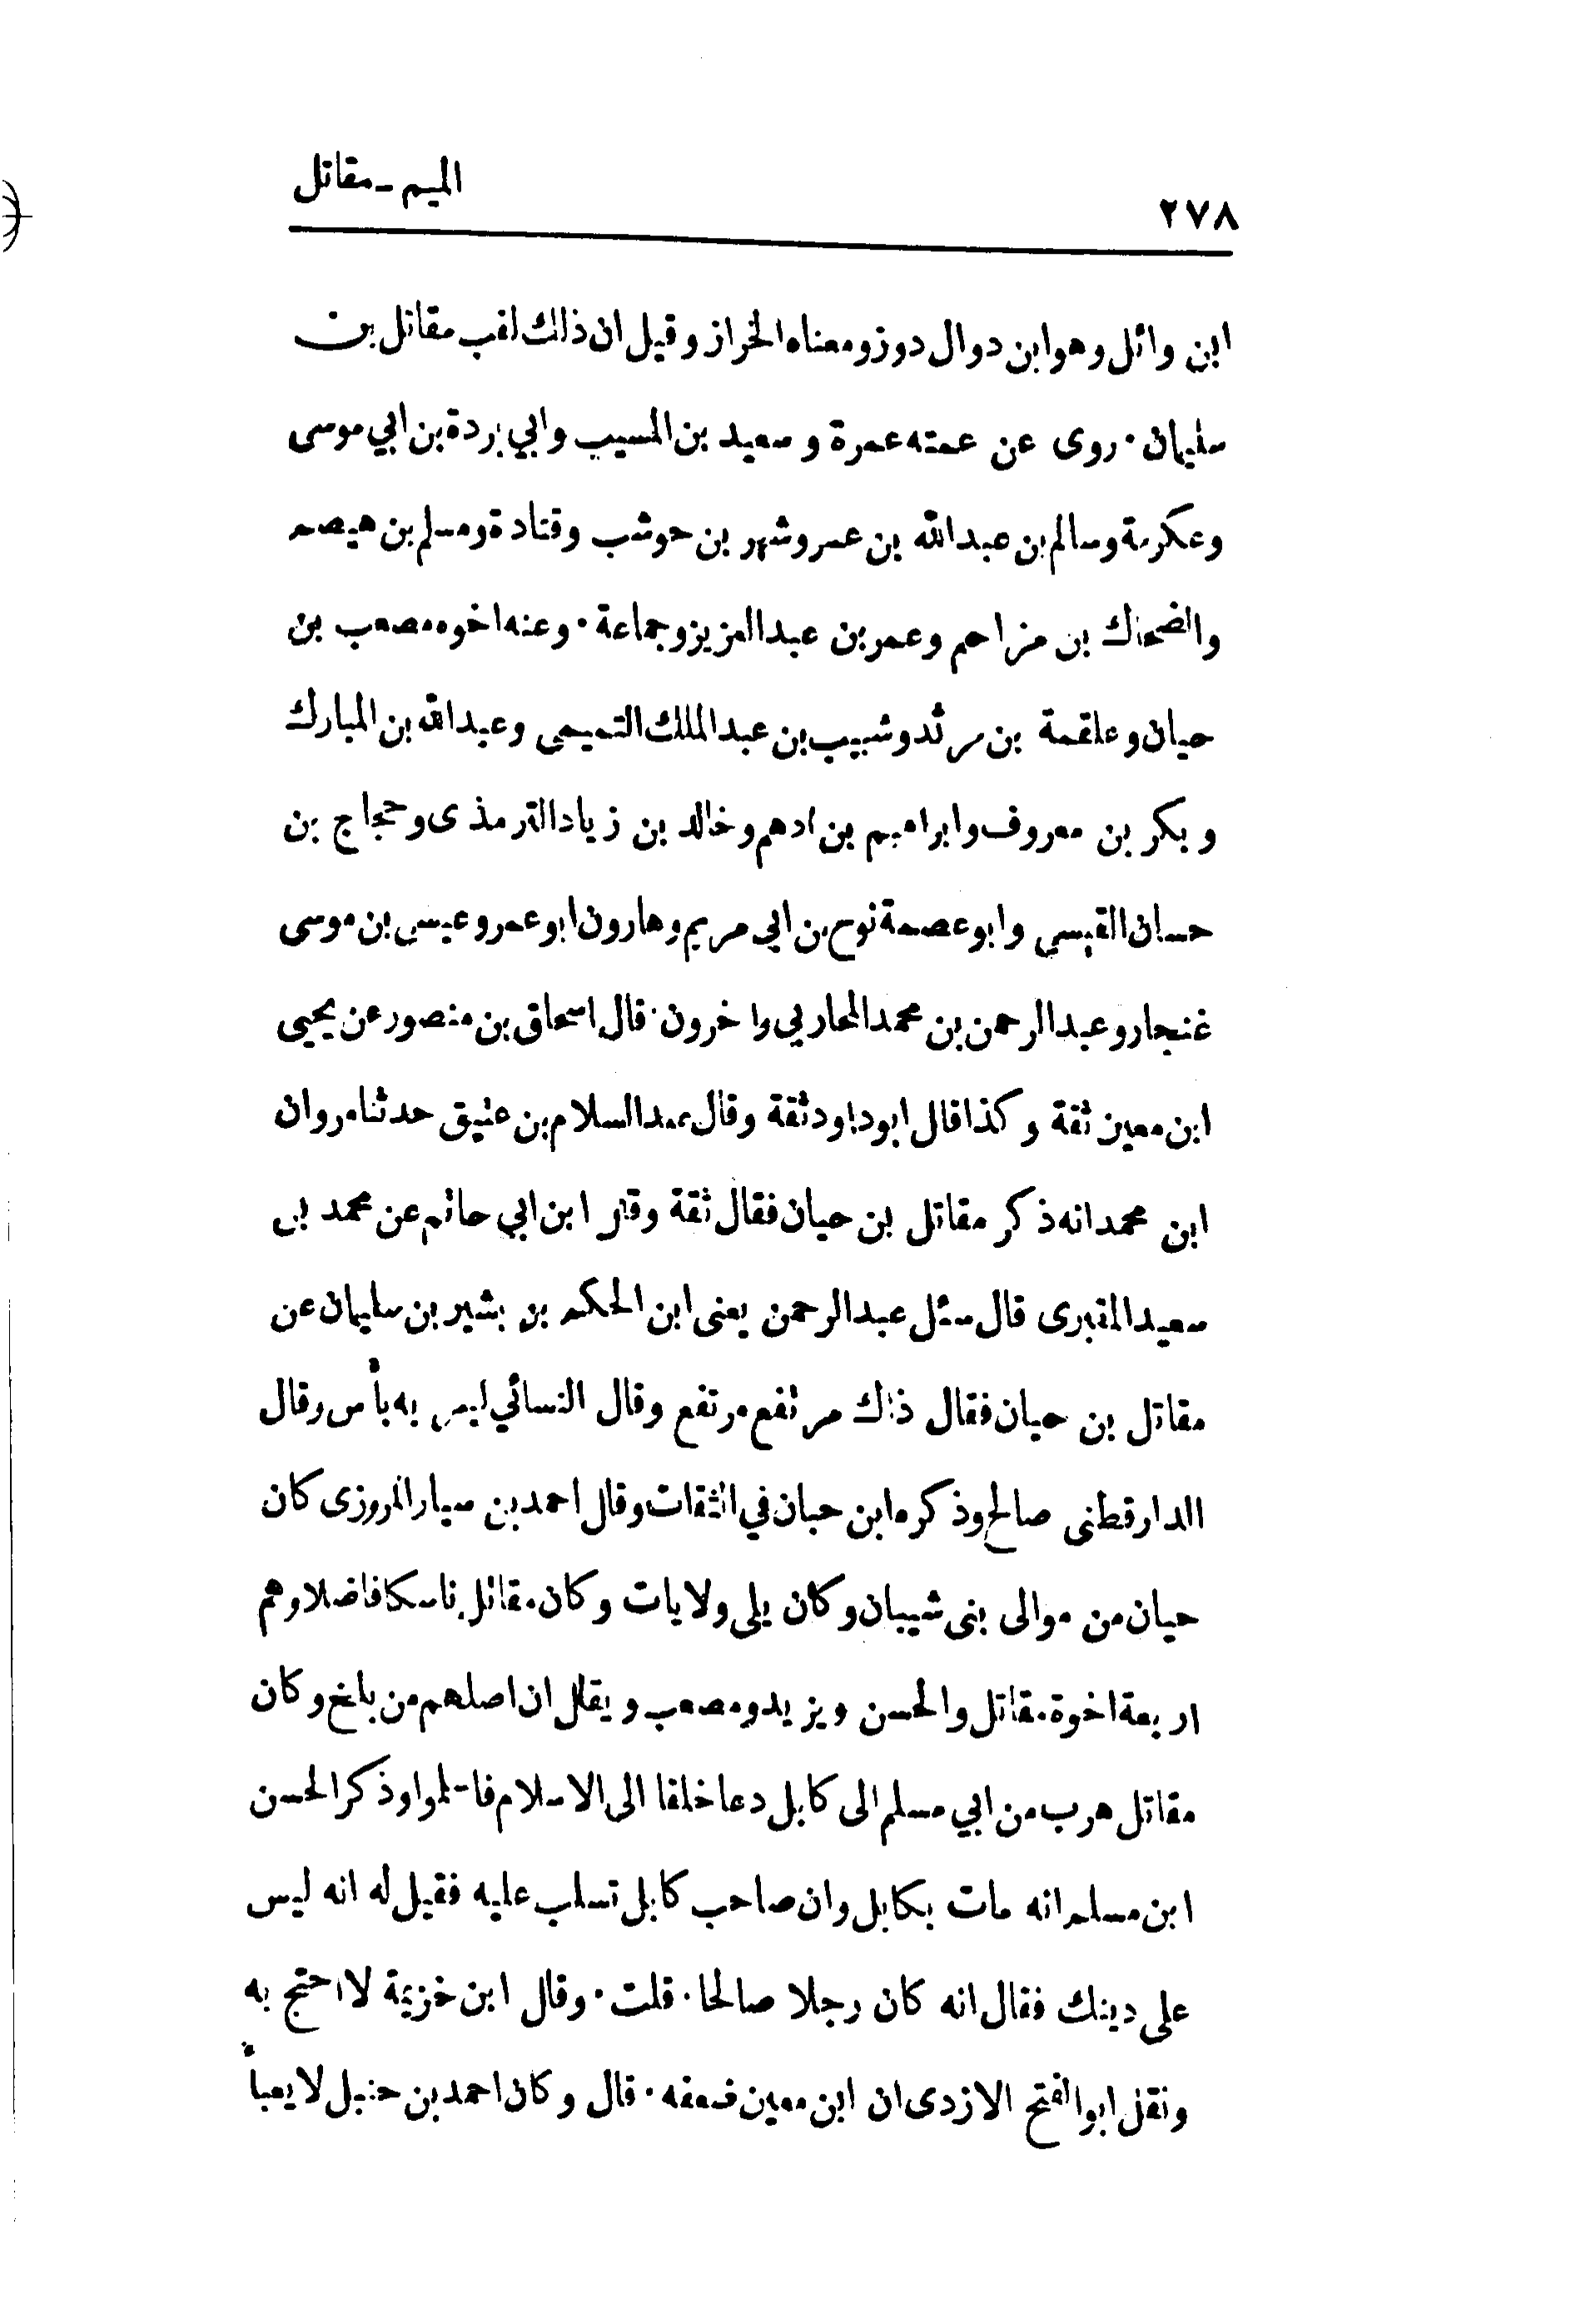 الميم - مقاتل
٢٧٨
ابن وائل وهو ابن دوال دوز ومعناه الخراز وقيل ان ذلك لقب مقاتل بن
سليمان · روى عن عمته عمرة و سعيد بن المسيب وابي بردة بن ابي موسى
وعكرمة وسالم بن عبد الله بن عمر وشهر بن حوشب وقتادة ومسلم بن هيصم
والضحاك بن مزاحم وعمر بن عبد العزيز وجماعة · وعنه اخوه مصعب بن
حيان وعلقمة بن مرثد وشبيب بن عبد الملك التميمى وعبد الله بن المبارك
و بكر بن معروف وابراهيم بن ادهم وخالد بن زياد الترمذى وحجاج بن
حسان القيسى وابو عصمة نوح بن ابي مريم وهارون ابو عمر وعيسى بن موسى
غنجار وعبد الرحمن بن محمد المحاربي واخرون · قال اسحاق بن منصور عن يحيى
ابن معين ثقة وكذا قال ابو داود ثقة وقال عبد السلام بن عتيق حدثنا مروان
ابن محمد انه ذكر مقاتل بن حيان فقال ثقة وقال ابن ابي حاتم عن محمد بن
سعيد المقبرى قال سئل عبد الرحمن يعنى ابن الحكم بن بشير بن سليمان عن
مقاتل بن حيان فقال ذاك مرتفع مرتفع وقال النسائي ليس به بأس وقال
الدارقطنى صالح وذكره ابن حبان في الثقات وقال احمد بن سيار المروزى كان
حيان من موالى بنى شيبان وكان يلى ولايات وكان مقاتل ناسكا فاضلا وهم
اربعة اخوة مقاتل والحسن ويزيد ومصعب ويقال ان اصلهم من بلخ وكان
مقاتل هرب من ابي مسلم الى كابل دعا خلقا الى الاسلام فاسلموا وذكر الحسن
ابن مسلم انه مات بكابل وان صاحب كابل تسلب عليه فقيل له انه ليس
على دينك فقال انه كان رجلا صالحا · قلت · وقال ابن خزيمة لا احتج به
ونقل ابو الفتح الازدى ان ابن معين ضعفه · قال وكان احمد بن حنبل لا يعبأ